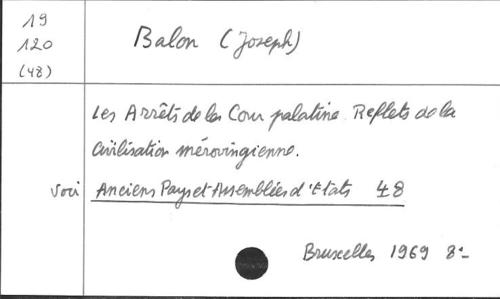 19
120
(48)
Balon (Joseph)
Les Arrêts de la Cour palatine. Reflets de la
civilisation mérovingienne.
voir Anciens Pays et Assemblées d'Etats 48
Bruxelles 1969 8°